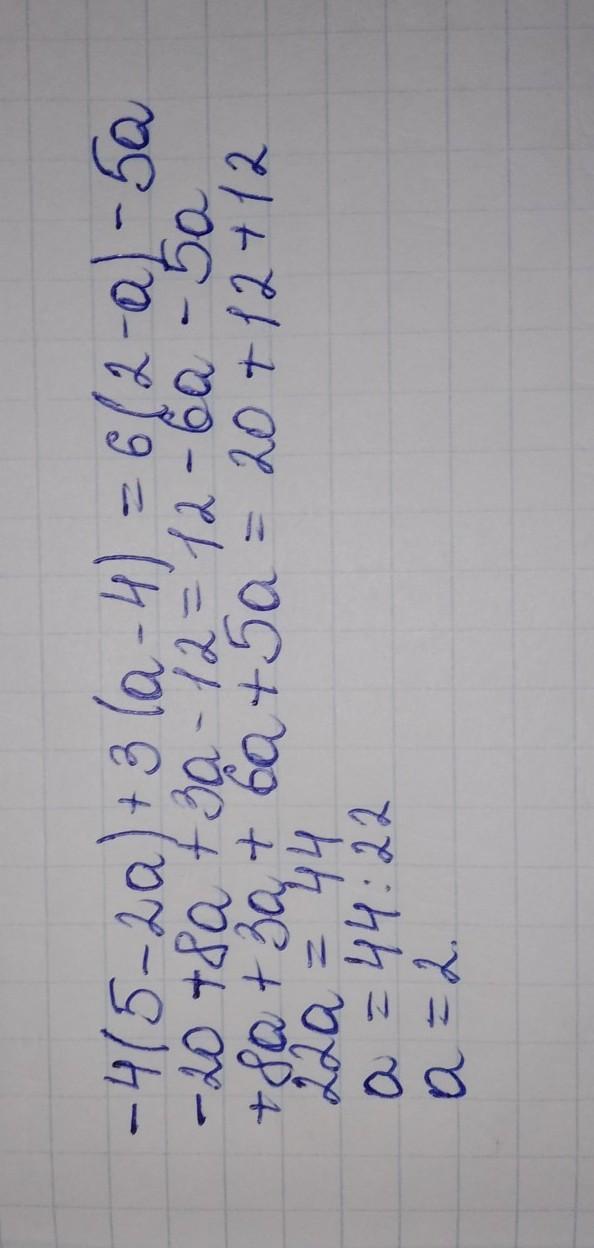 -4(5-2a)+3(a-4)=6(2-a)-5a
-20+8a+3a-12=12-6a-5a
+8a+3a+6a+5a=20+12+12
22a=44
a=44:22
a=2.